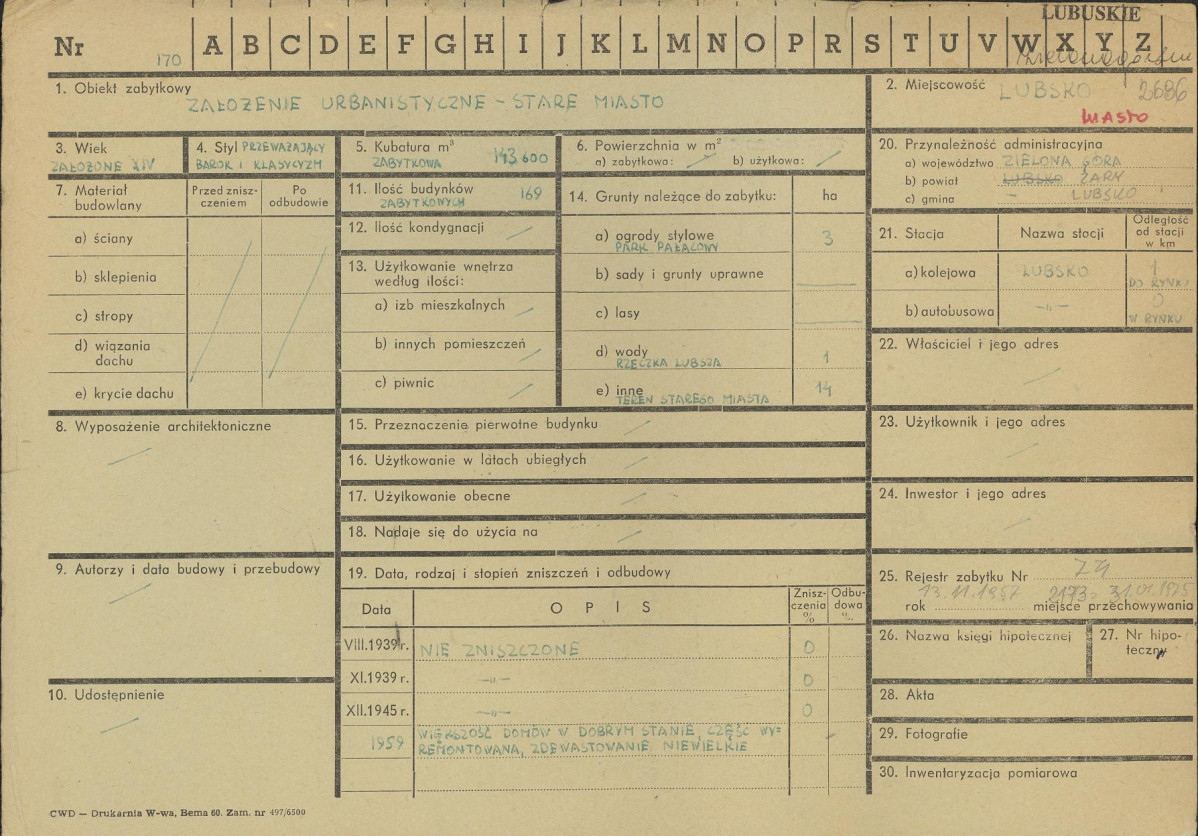 LUBUSKIE
Nr 170 A B C D E F G H I J K L M N O P R S T U V W X Y Z
1. Obiekt zabytkowy
ZAŁOŻENIE URBANISTYCZNE – STARE MIASTO
2. Miejscowość LUBSKO 2686
MIASTO
3. Wiek
ZAŁOŻONE XIV
4. Styl PRZEWAŻAJĄCY
BAROK I KLASYCYZM
5. Kubatura m³
ZABYTKOWA 143 600
6. Powierzchnia w m²
a) zabytkowa: b) użytkowa:
7. Materiał budowlany
Przed znisz-
czeniem
Po
odbudowie
a) ściany
b) sklepienia
c) stropy
d) wiązania
dachu
e) krycie dachu
8. Wyposażenie architektoniczne
9. Autorzy i data budowy i przebudowy
10. Udostępnienie
11. Ilość budynków 169
ZABYTKOWYCH
12. Ilość kondygnacji
13. Użytkowanie wnętrza
według ilości:
a) izb mieszkalnych
b) innych pomieszczeń
c) piwnic
14. Grunty należące do zabytku: ha
a) ogrody stylowe 3
PARK PAŁACOWY
b) sady i grunty uprawne
c) lasy
d) wody 1
RZECZKA LUBSZA
e) inne 14
TEREN STAREGO MIASTA
15. Przeznaczenie pierwotne budynku
16. Użytkowanie w latach ubiegłych
17. Użytkowanie obecne
18. Nadaje się do użycia na
19. Data, rodzaj i stopień zniszczeń i odbudowy
Data OPIS Znisz-
czenia
%
Odbu-
dowa
%
VIII.1939 r. NIE ZNISZCZONE 0
XI.1939 r. —„— 0
XII.1945 r. —„— 0
1959 WIĘKSZOŚĆ DOMÓW W DOBRYM STANIE, CZĘŚĆ WY=
REMONTOWANA, ZDEWASTOWANIE NIEWIELKIE
20. Przynależność administracyjna
a) województwo ZIELONA GÓRA
b) powiat LUBSKO ŻARY
c) gmina – LUBSKO
21. Stacja Nazwa stacji Odległość
od stacji
w km
a) kolejowa LUBSKO 1
DO RYNKU
b) autobusowa —„— 0
W RYNKU
22. Właściciel i jego adres
23. Użytkownik i jego adres
24. Inwestor i jego adres
25. Rejestr zabytku Nr
13.11.1957 2173 31.01.1975
rok miejsce przechowywania
26. Nazwa księgi hipotecznej
27. Nr hipo-
teczny
28. Akta
29. Fotografie
30. Inwentaryzacja pomiarowa
CWD — Drukarnia W-wa, Bema 60. Zam. nr 497/6500